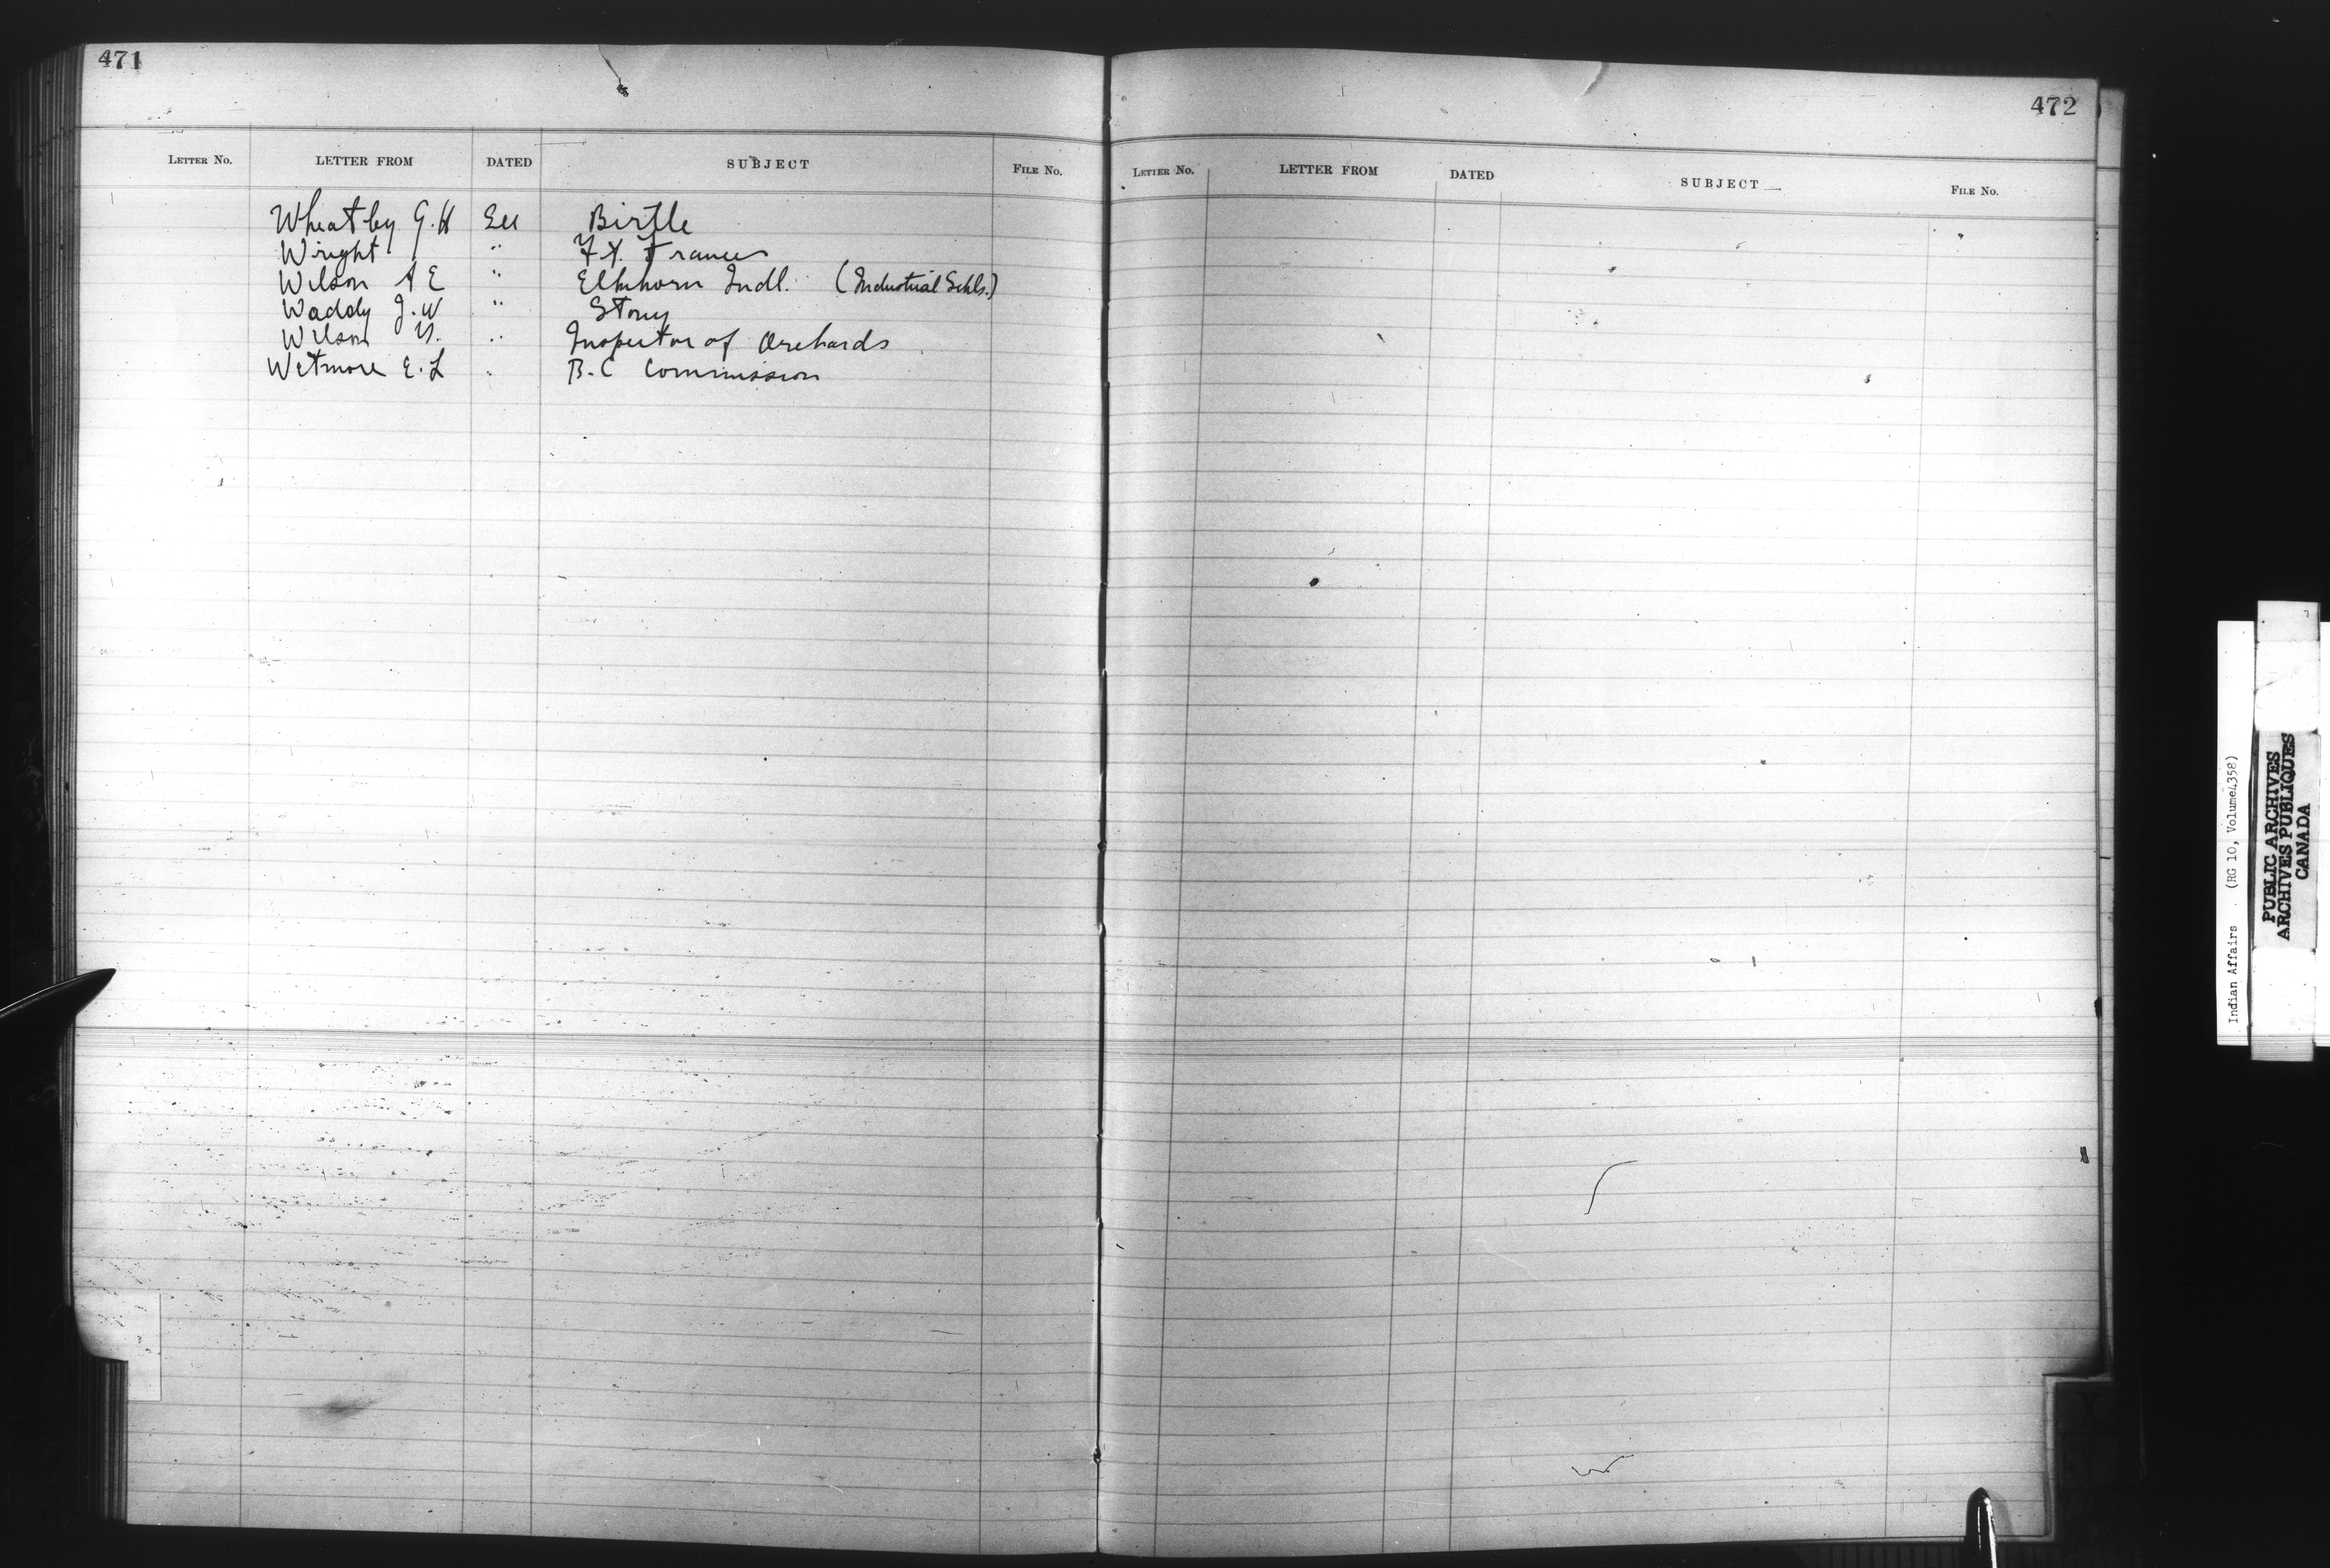 471
LETTER NO. LETTER FROM DATED SUBJECT FILE NO.
Wheatley G. H See Birtle
Wright " Ft. Frances
Wilson A E " Elkhorn Indl. (Industrial Schls.)
Waddy J. W " Stony
Wilson " Inspector of Orchards
Wetmore E. L " B. C Commission
472
LETTER NO. LETTER FROM DATED SUBJECT FILE NO.
Indian Affairs . (RG 10, Volume 4358)
PUBLIC ARCHIVES
ARCHIVES PUBLIQUES
CANADA